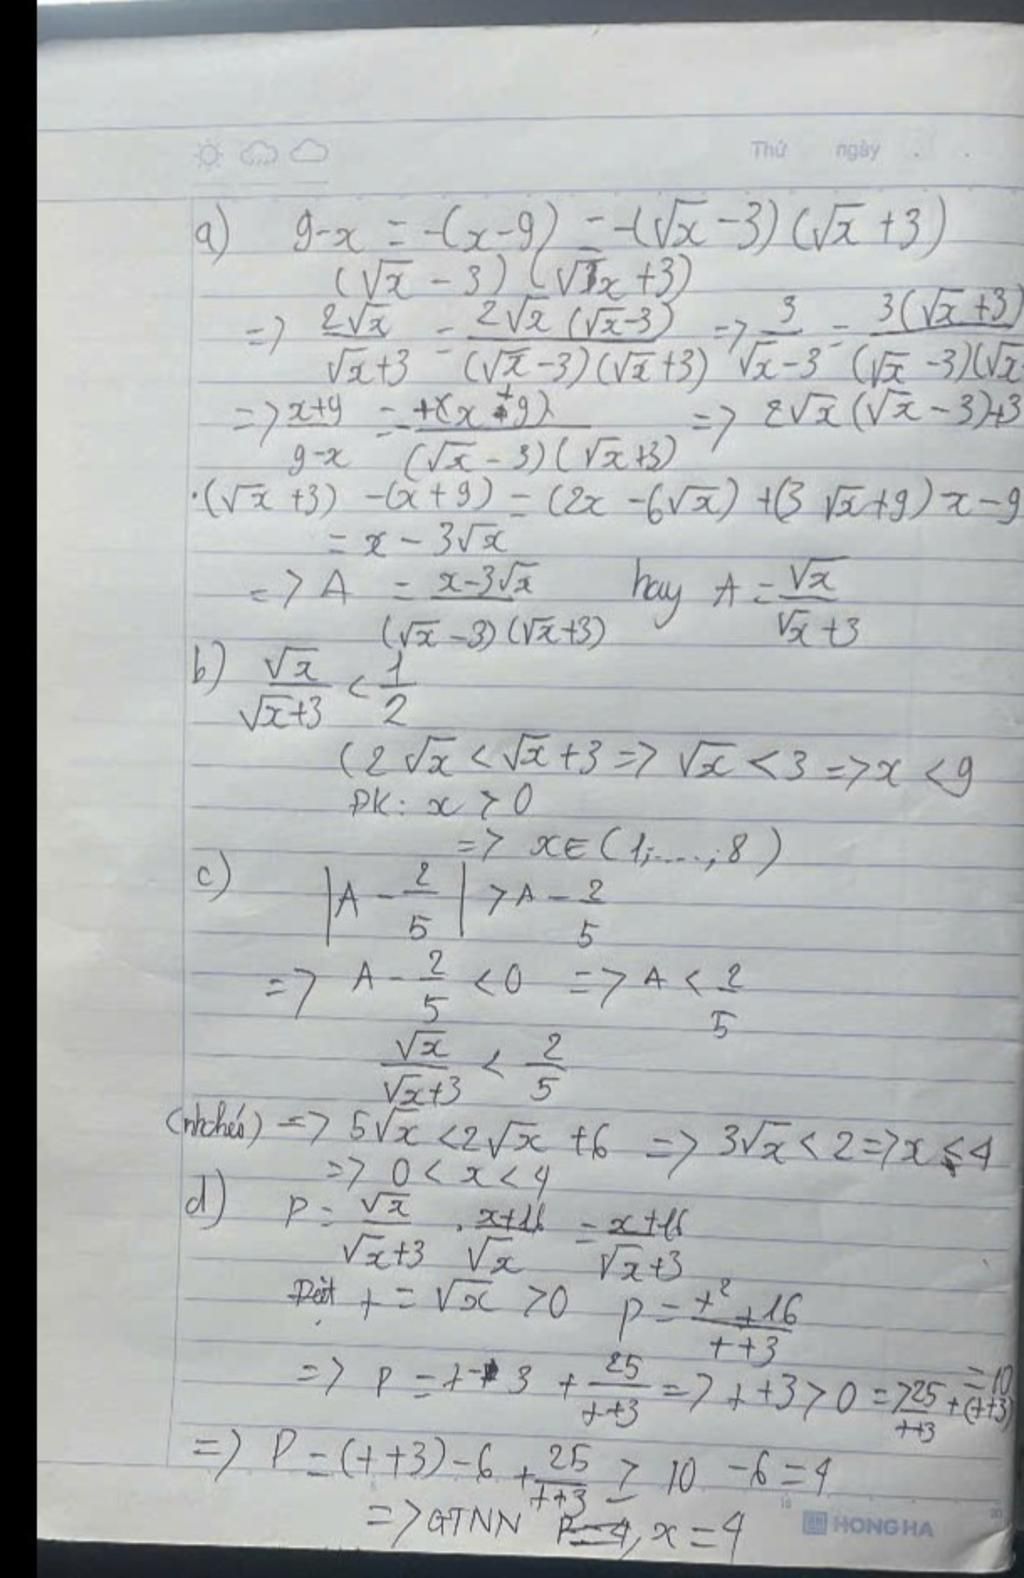 Thứ ngày . .
a) 9-x = -(x-9) = -(√x -3) (√x +3)
(√x - 3) (√x +3)
=> 2√x/(√x+3) = 2√x (√x-3)/((√x -3)(√x +3)) => 3/(√x-3) = 3(√x +3)/((√x -3)(√x
=> x+9/(9-x) = +(x+9)/((√x - 3)(√x+3)) => 2√x (√x - 3)+3
.(√x +3) -(x+9) = (2x -6√x) +(3√x+9) x-9
= x - 3√x
=> A = x-3√x/((√x -3)(√x+3)) hay A = √x/(√x+3)
b) √x/(√x+3) < 1/2
(2√x < √x +3 => √x < 3 => x < 9
ĐK: x > 0
=> x∈ (1;....;8)
c) |A - 2/5| > A - 2/5
=> A - 2/5 < 0 => A < 2/5
√x/(√x+3) < 2/5
(nhchéo) => 5√x < 2√x +6 => 3√x < 2 => x < 4
=> 0 < x < 4
d) P = √x/(√x+3) . x+16/√x = x+16/(√x+3)
Đặt t = √x > 0 P = t² + 16/(t+3)
=> P = t - 3 + 25/(t+3) => t+3 > 0 => 25/(t+3) + (t+3) = 10
=> P = (t+3) - 6 + 25/(t+3) ≥ 10 - 6 = 4
=> GTNN P = 4, x = 4
HONG HA